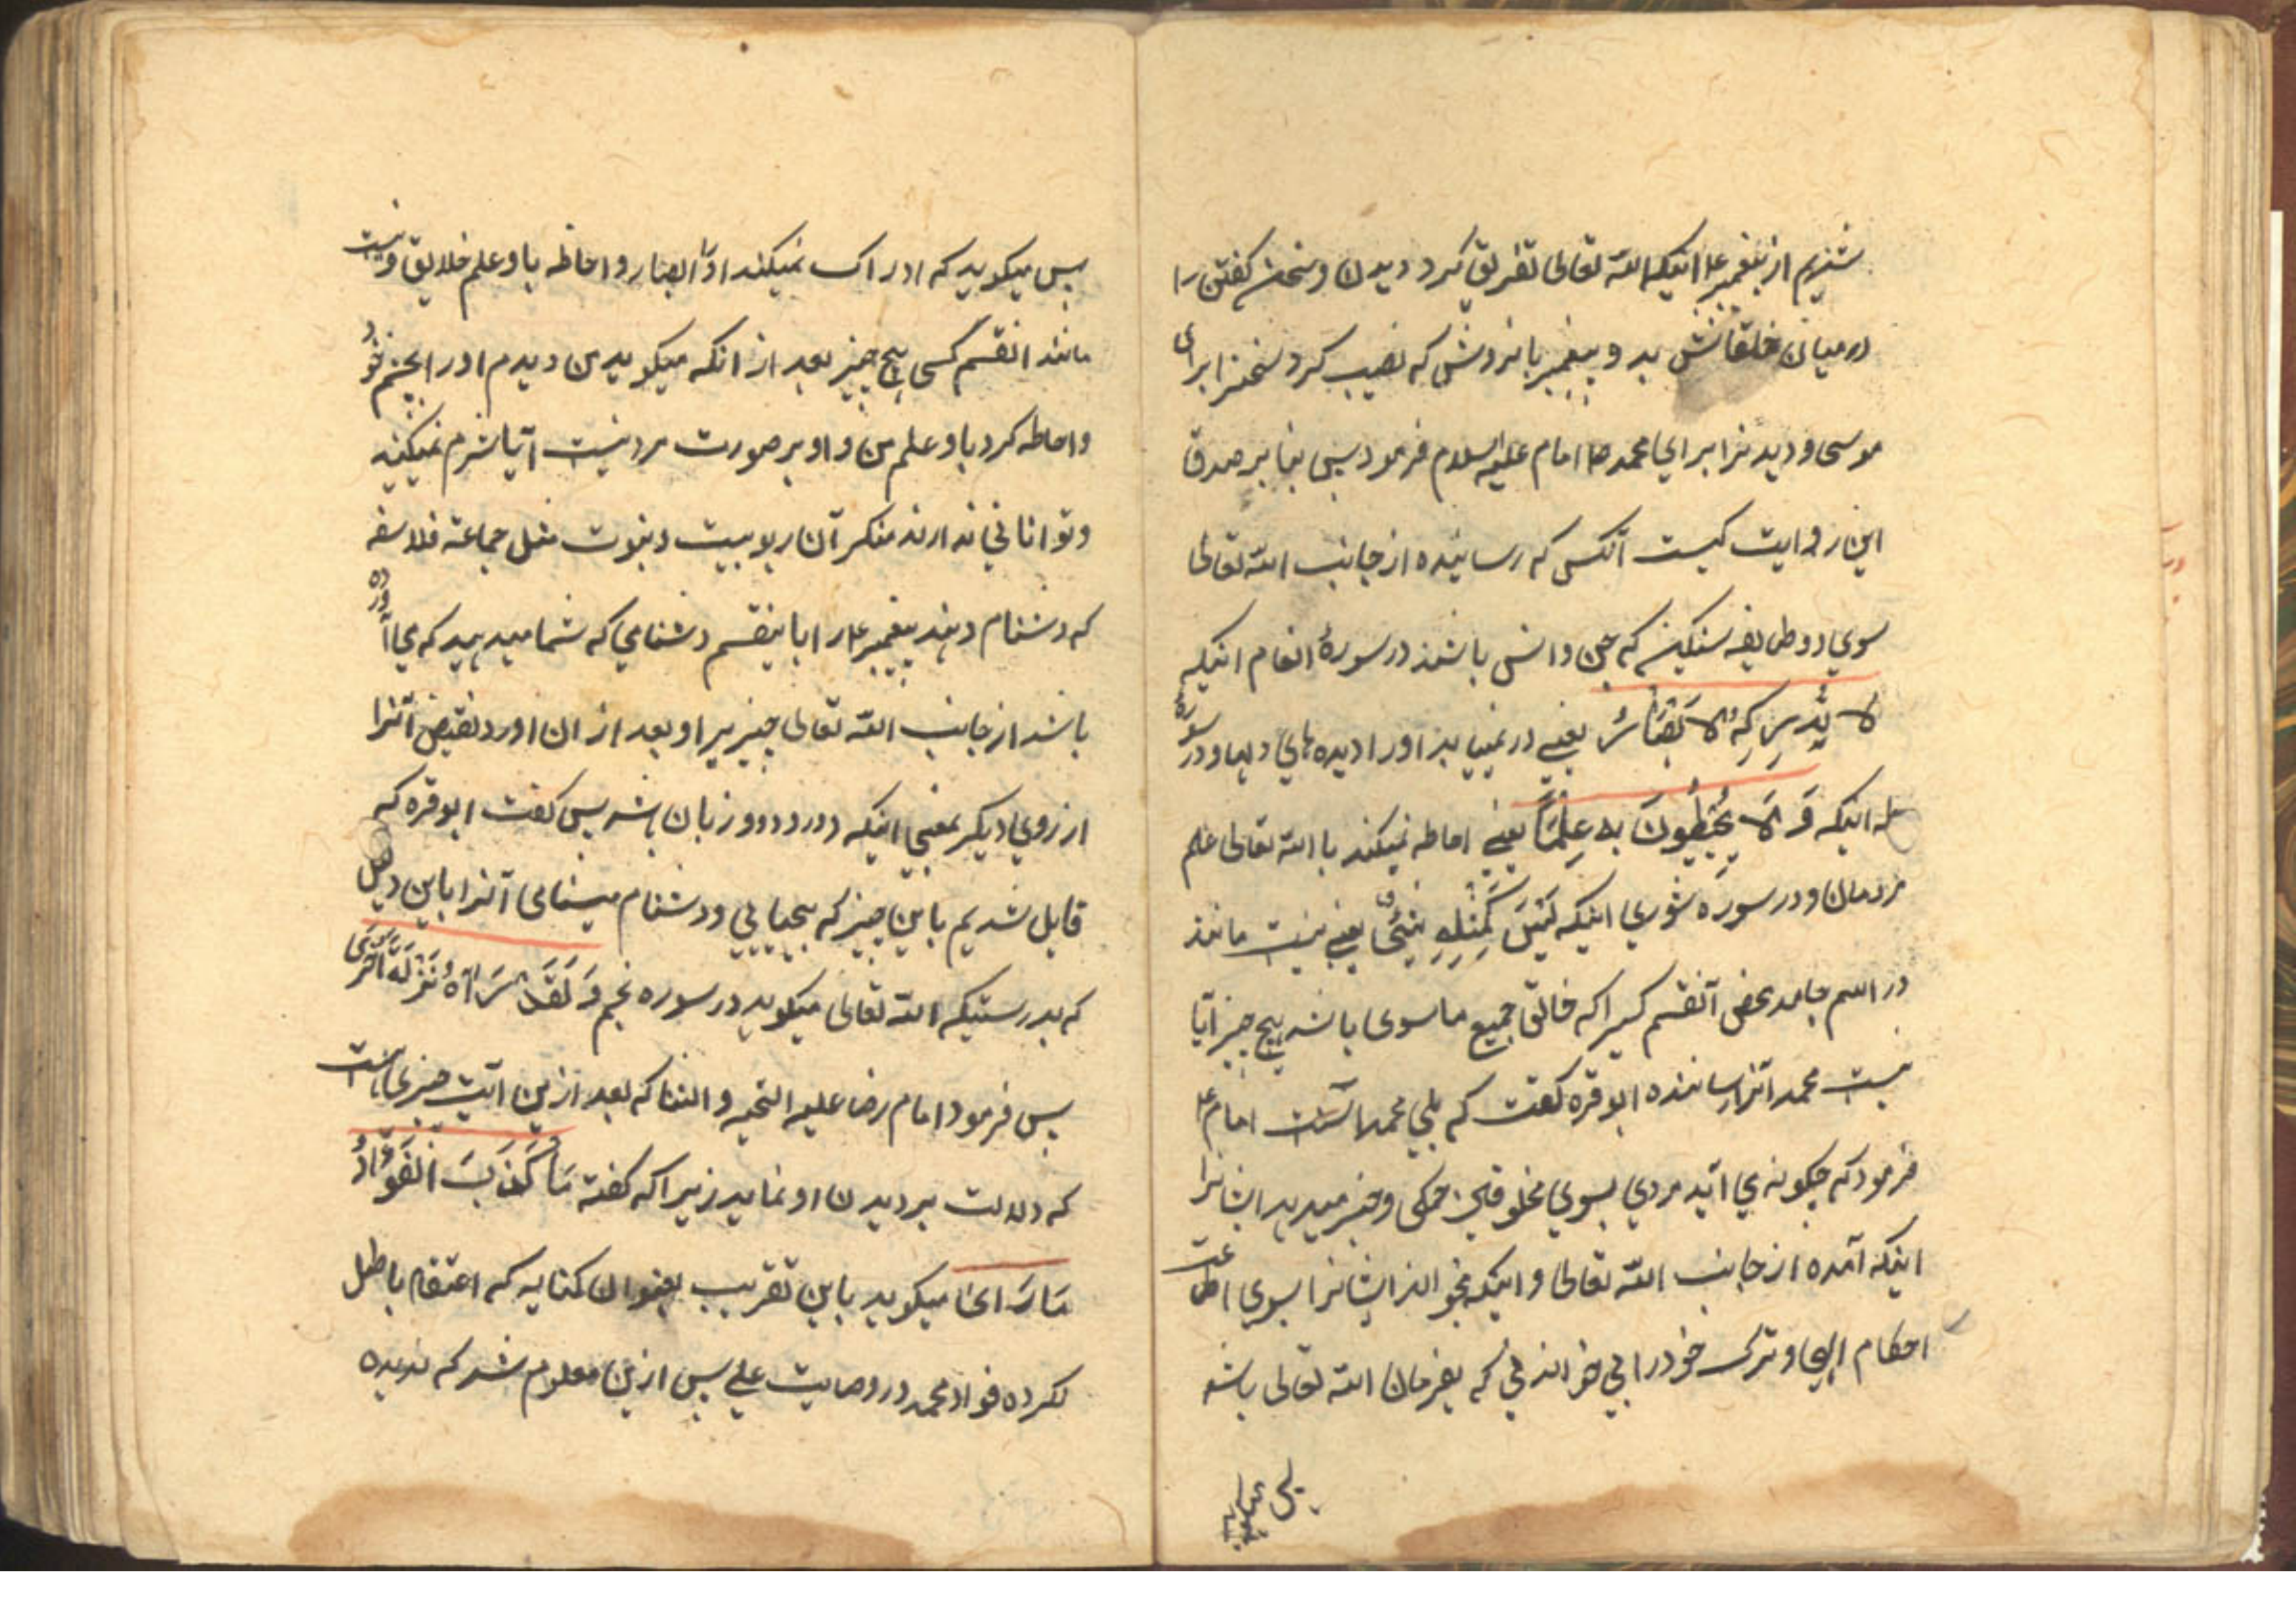 شنیدیم از پیغمبر ع اینکه الله تعالی تفریق کرد دیدن و سخن گفتن را
در میان خلقانش بدو پیغمبر با نزدش که نصیب کرد سخنرا برای
موسی و دیدنرا برای محمد ص امام علیه السلام فرمود پس بنا بر صدق
این روایت کیست آنکس که رسانیده از جانب الله تعالی
سوی دو طایفه سنکین که جن و انس باشند در سورهٔ انعام اینکه
لا یُدْرِکُهُ الابْصَارُ یعنی در نمییابد او را دیده های دلها و در سوره
طه اینکه وَ لَا یُحِیطُونَ بِهِ عِلْمًا یعنی احاطه نمیکند با الله تعالی علم
مردمان و در سوره شوری اینکه لَیْسَ کَمِثْلِهِ شَیْءٌ یعنی نیست مانند
در اسم جامد محض آنقسم کسیرا که خالق جمیع ما سوی باشد هیچ چیز آیا
نیست محمد آنرا رساننده ابو قره گفت که بلی محمد است امام ع
فرمود که چگونه می آید مردی بسوی مخلوقین حمکی و خبر میدهد ایشانرا
اینکه آمده از جانب الله تعالی و اینکه بخواند ایشانرا بسوی اطاعت
احکام الهی و ترک خود رایی خواندنی که بفرمان الله تعالی باشد
پس میکوید که ادراک نمیکند او را ابصار و احاطه باو علم خلایق و نیست
مانند انقسم کسی هیچ چیز بعد از انکه میکوید من دیدم او را بچشم خود
و احاطه کرد باو علم من و او بر صورت مرد نیست آیا شرم نمیکنید
و توانائی ندارند منکر آن ربوبیت و نبوت مثل جماعة فلاسفه
که دشنام دهند پیغمبر ع را باینقسم دشنامی که شما میدهید که می آورده
باشد از جانب الله تعالی چیزیرا و بعد از ان اورد نقیض آنرا
از روی دیکر بمعنی اینکه دو رو و دو زبان باشد پس گفت ابو قره که
قایل شدیم باین چیز که بیحیایی و دشنام میشماری آنرا باین دلیل
که بدرستیکه الله تعالی میکوید در سوره نجم وَ لَقَدْ رَآهُ نَزْلَةً اُخْرَی
پس فرمود امام رضا علیه التحیه و الثنا که بعد ازین آیت چیزی است
که دلالت بر دیدن او نماید زیرا که گفته مَا کَذَبَ الْفُؤَادُ
مَا رَأی میکوید باین تقریب بعنوان کنایه که اعتقاد باطل
نکرده فواد محمد در وصایت علی پس ازین معلوم شد که ندیده